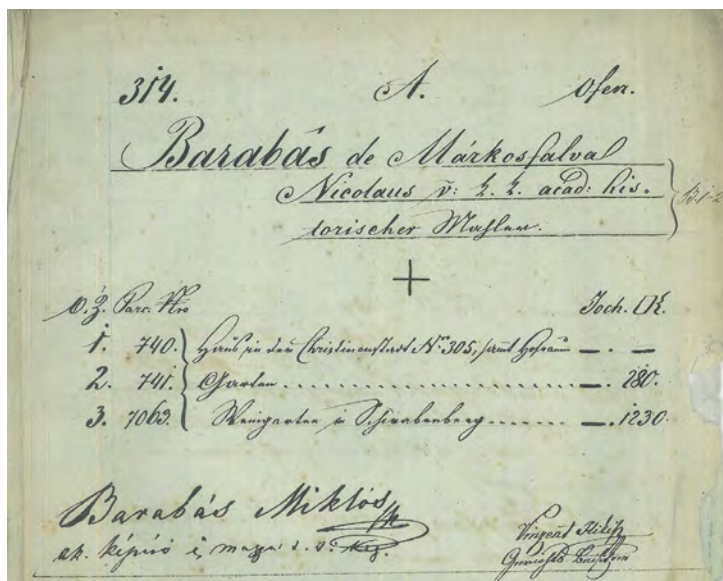 314. A. Ofen.
Barabás de Márkosfalva
Nicolaus v: k. k. acad: his-
torischer Mahler.
B. 1-2
O. Z. Parc: Nro Joch. □K.
1. 740. Haus in der Christinenstadt Nr: 305, samt Hofraum — . —
2. 741. Garten — . 280.
3. 7063. Weingarten in Schwabenberg — . 1230.
Barabás Miklós
ak. képiró
Vinzent